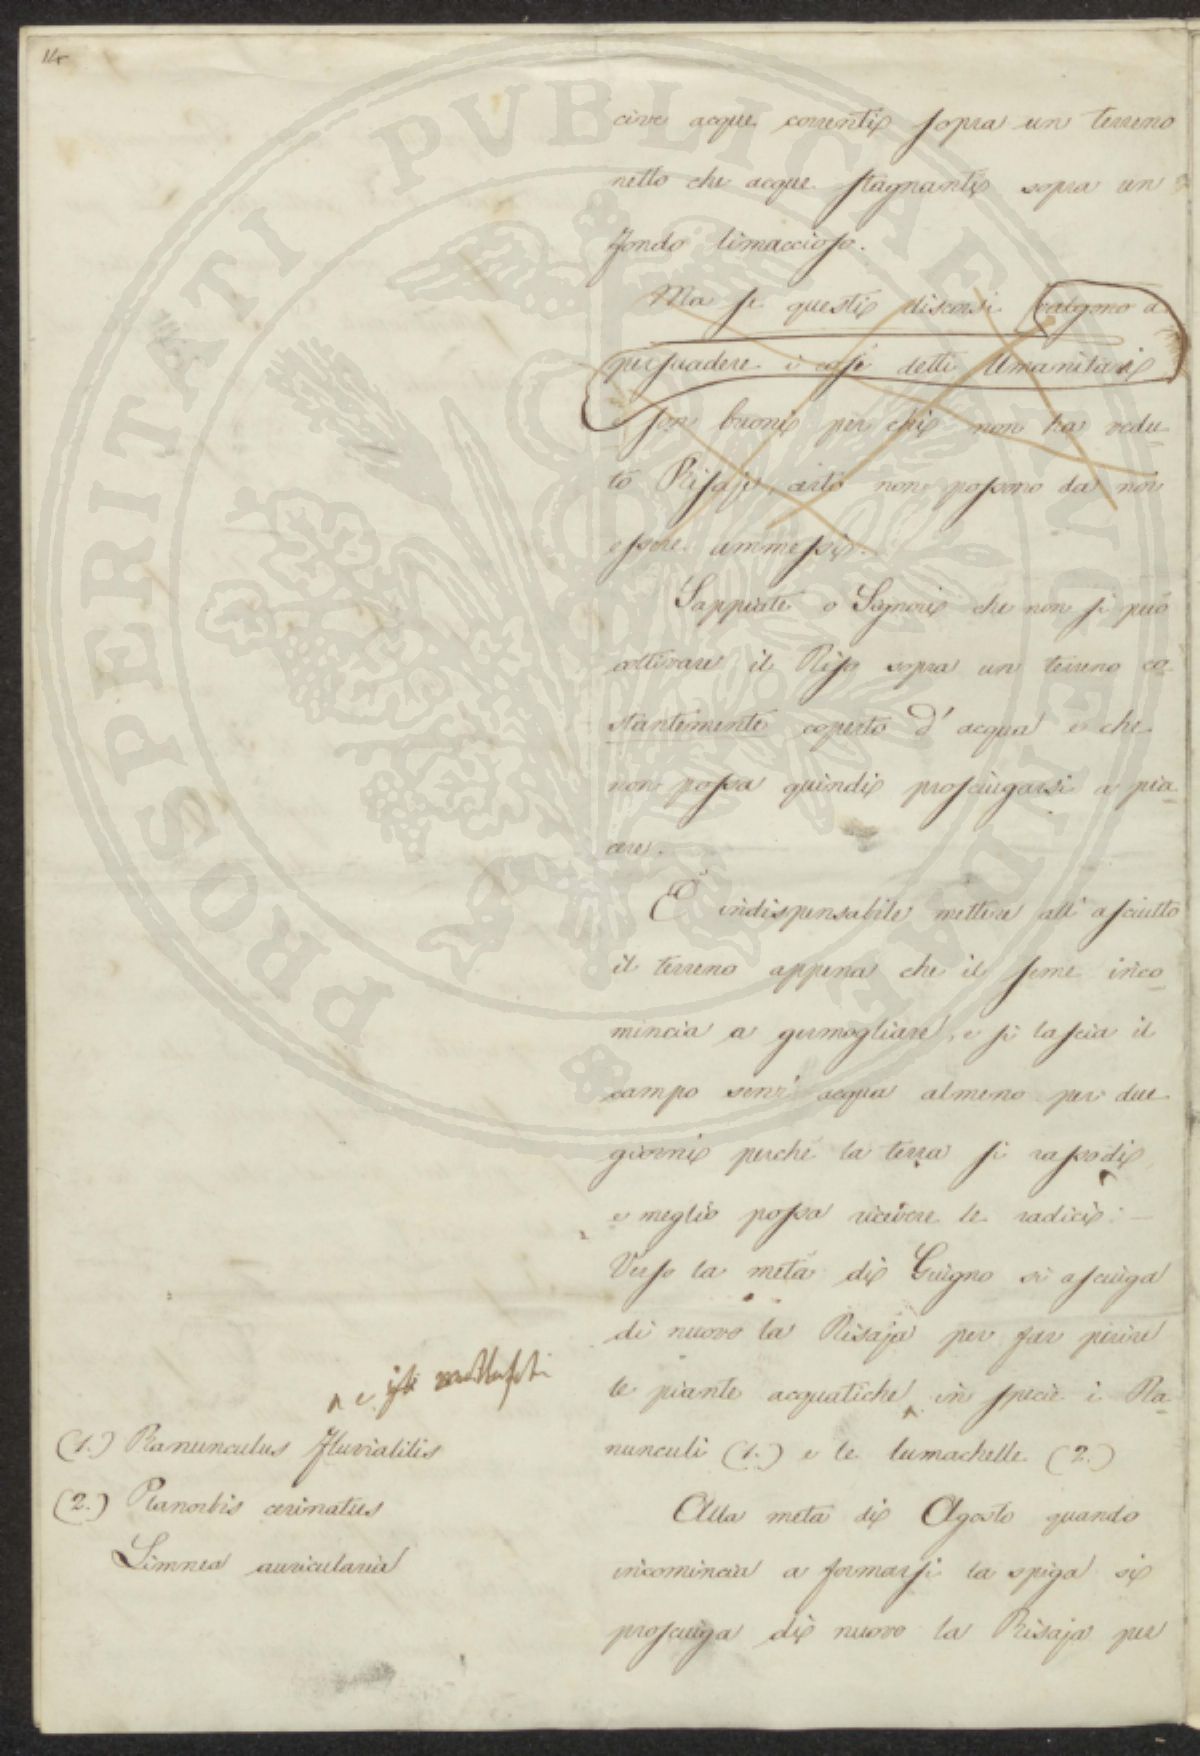 14
cive acque correnti sopra un terreno
netto che acque stagnanti sopra un
fondo limaccioso.
Ma se questi discorsi valgono a
persuadere i così detti Umanitari
e son buoni per chi non ha vedu-
to Risaje, certo non possono da noi
essere ammessi.
Sappiate o Signori che non si può
coltivare il Riso sopra un terreno co-
stantemente coperto d'acqua e che
non possa quindi prosciugarsi a pia-
cere.
È indispensabile mettere all'asciutto
il terreno appena che il seme inco-
mincia a germogliare, e si lascia il
campo senz'acqua almeno per due
giorni perchè la terra si rassodi
e meglio possa ricevere le radici: —
Verso la metà di Giugno si asciuga
di nuovo la Risaja per far perire
le piante acquatiche in specie i Ra-
nunculi (1.) e le lumachelle (2.)
Alla metà di Agosto quando
incomincia a formarsi la spiga si
prosciuga di nuovo la Risaja per
(1.) Ranunculus fluvialilis
(2.) Planorbis cerinatus
Limnea auricularia
PROSPERITATI PVBLICAE AVGENDAE